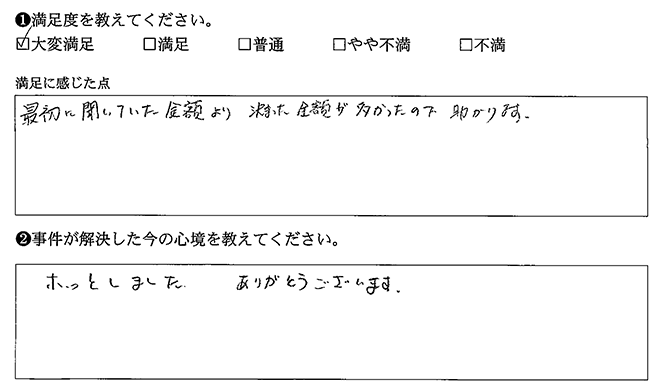 ❶満足度を教えてください。
☑大変満足 □満足 □普通 □やや不満 □不満
満足に感じた点
最初に聞いていた金額より 決まった金額が多かったので 助かります。
❷事件が解決した今の心境を教えてください。
ホッとしました。 ありがとうございます。